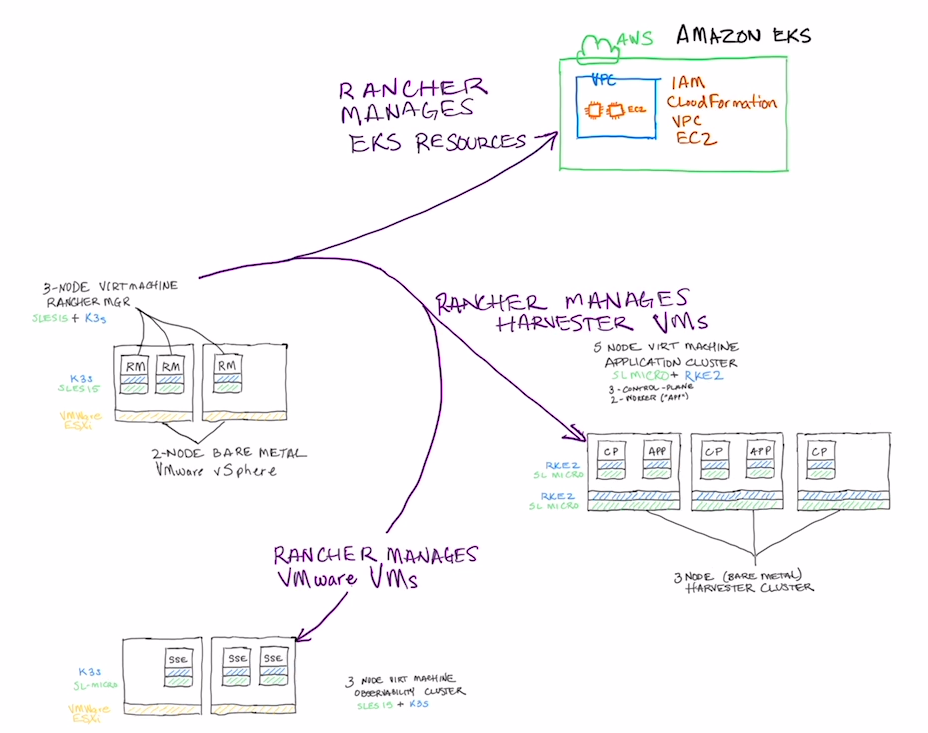 AWS
AMAZON EKS
VPC
EC2
IAM
CloudFormation
VPC
EC2
RANCHER
MANAGES
EKS RESOURCES
3-NODE VIRT MACHINE
RANCHER MGR
SLES15 + K3s
RM RM RM
K3s
SLES15
VMWare
ESXi
2-NODE BARE METAL
VMware vSphere
RANCHER MANAGES
HARVESTER VMs
5 NODE VIRT MACHINE
APPLICATION CLUSTER
SL MICRO + RKE2
3-CONTROL-PLANE
2-WORKER ("APP")
CP APP CP APP CP
RKE2
SL MICRO
RKE2
SL MICRO
3 NODE (BARE METAL)
HARVESTER CLUSTER
RANCHER MANAGES
VMware VMs
SSE SSE SSE
K3s
SL-MICRO
VMWare
ESXi
3 NODE VIRT MACHINE
OBSERVABILITY CLUSTER
SLES 15 + K3S